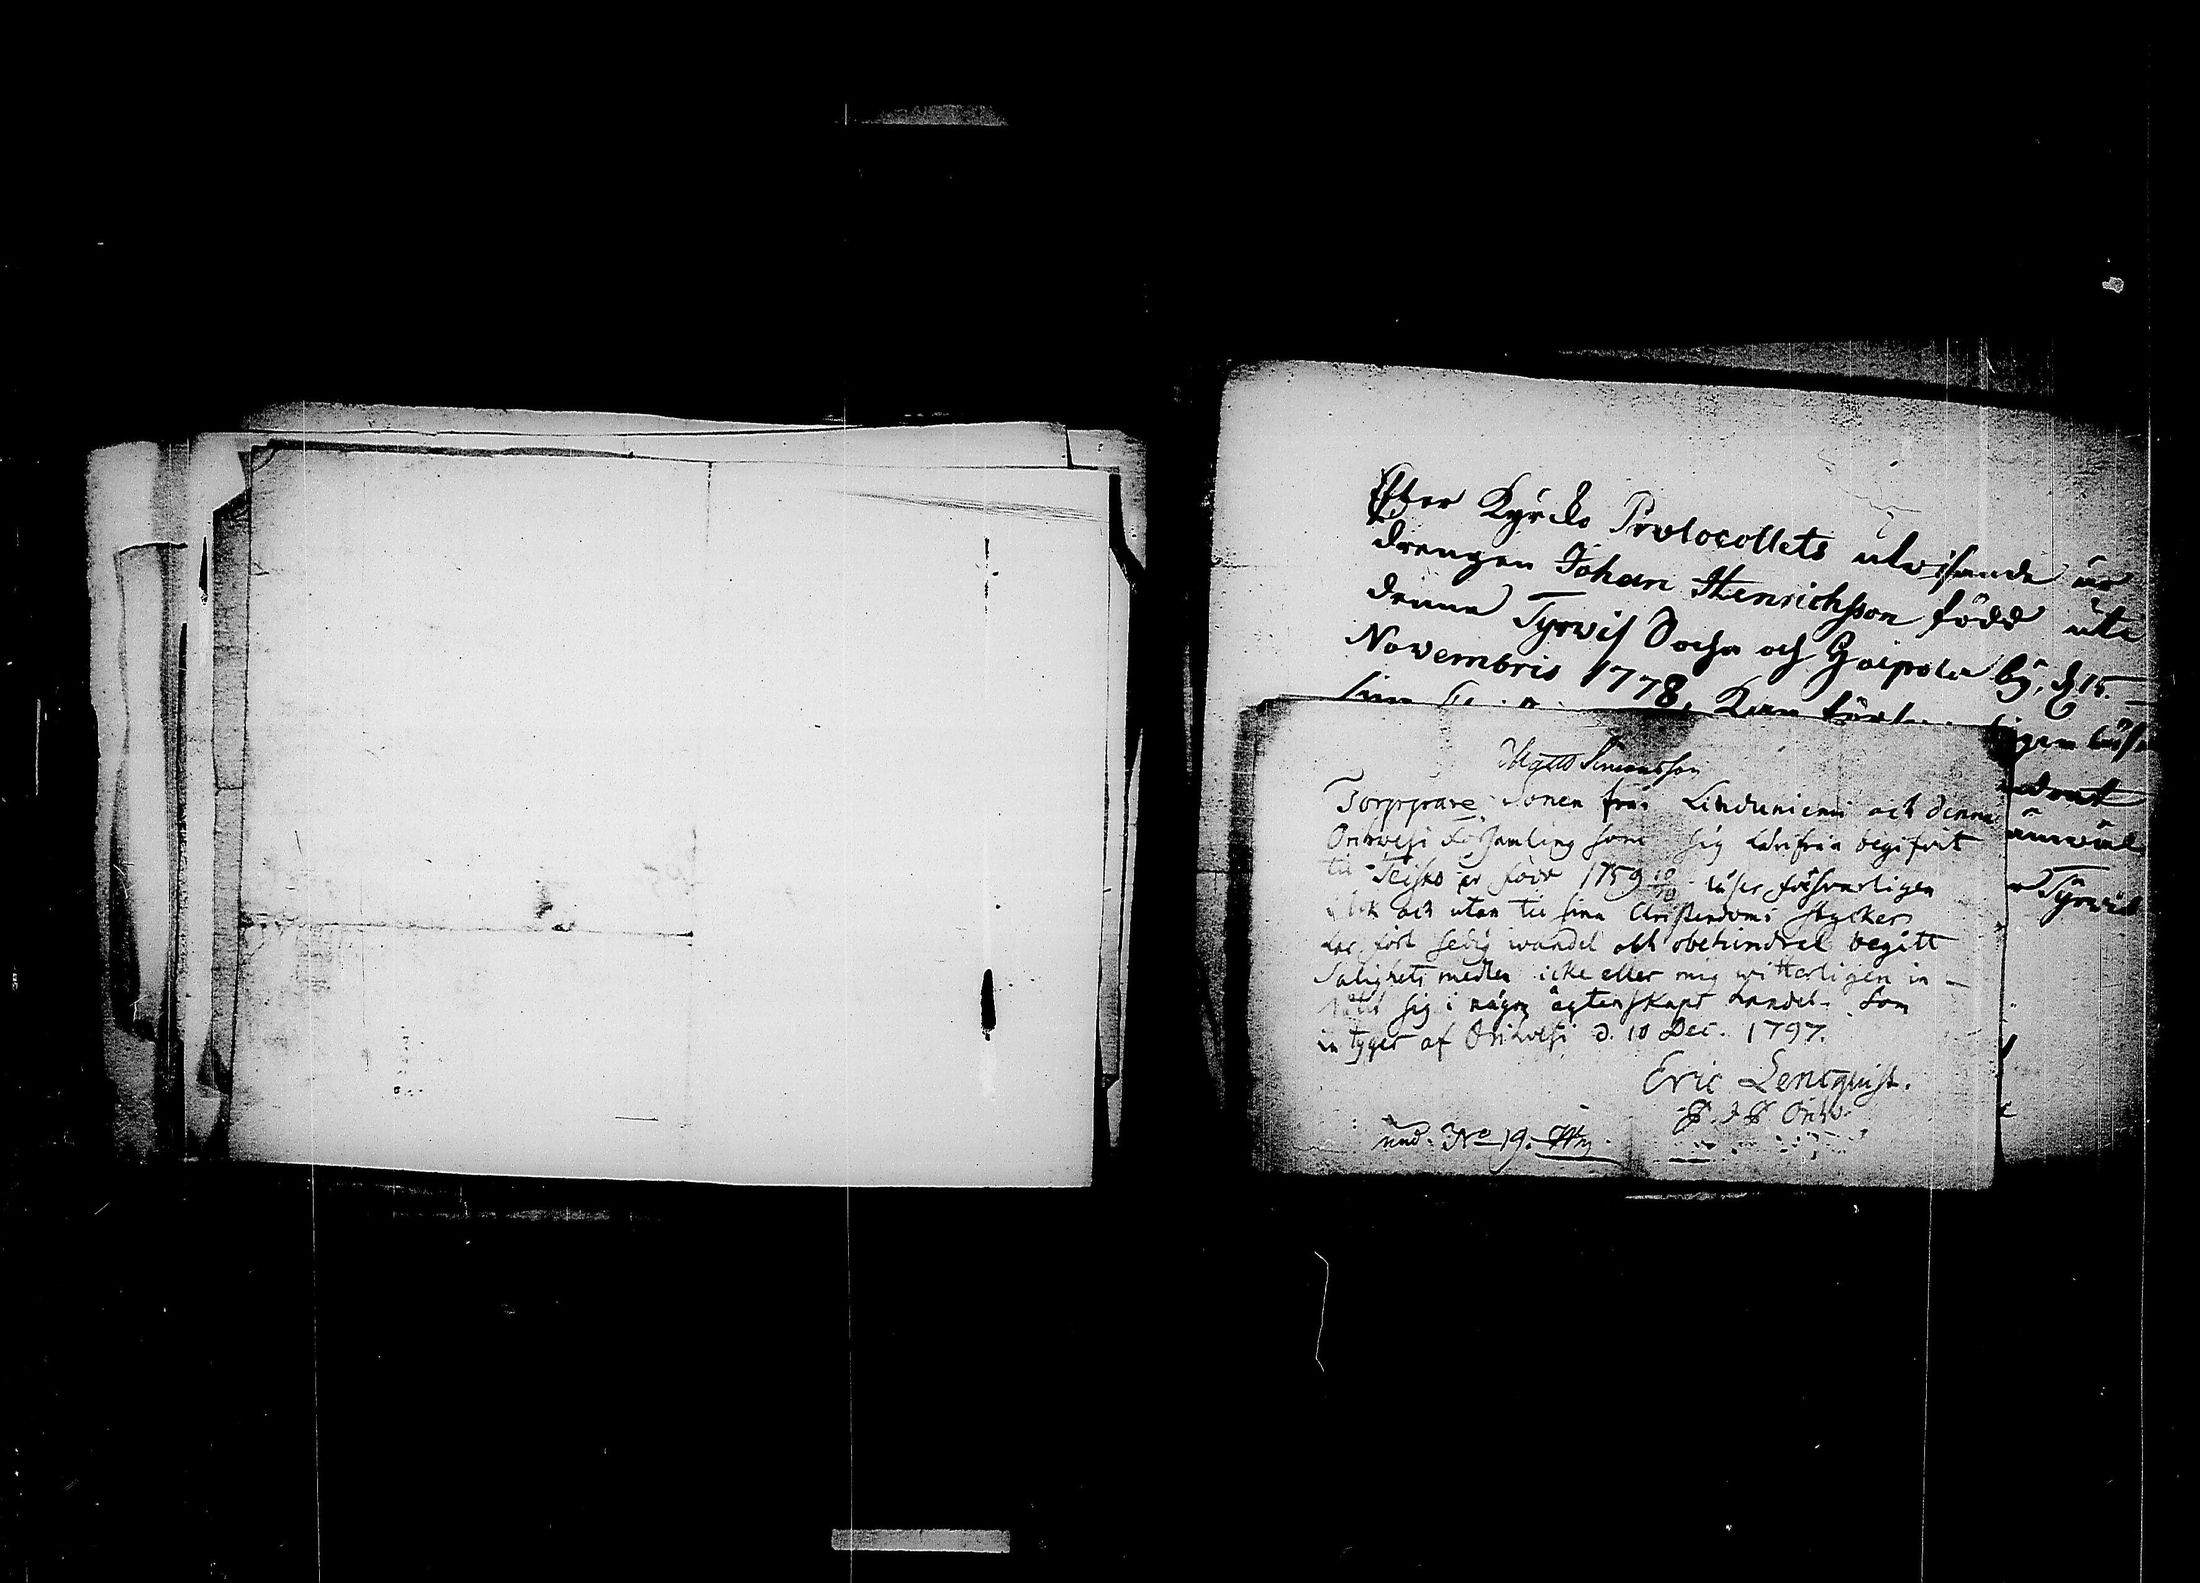 Efter Kyrcko Protocollets utwisande är
drengen Johan Henrichsson född uti
denna Tyrvis Sochn och Gaipola by, d 15
Novembris 1778, Kan
läsa
Tyrwis
Matts Simonsson
Torppare Sonen från Linduniemi och denna
Orihvesi Församling som sig härifrån begifvit
til Teisko är född 1759 läser försvarligen
i bok och utan til sina Christendoms stycker
har fört sedig wandel och obehindrat begått
Salighets medlen icke eller mig witterligen in-
låtit sig i någon ägtenskaps handel. Som
intygar af Orihvesi d. 10 Dec. 1797.
Eric Lencqvist.
No 19.